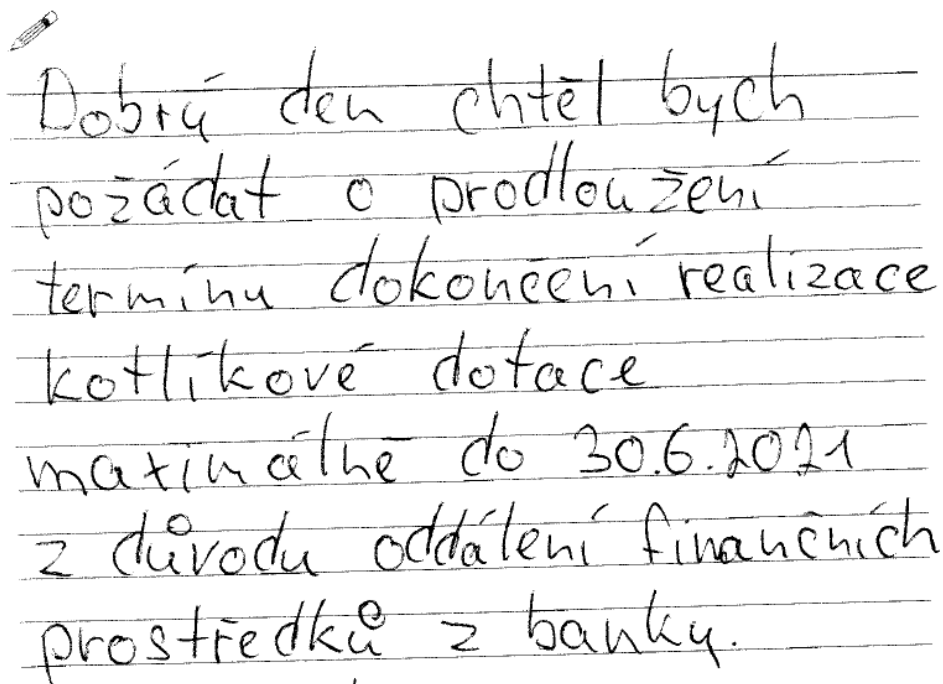 Dobrý den chtěl bych
požádat o prodloužení
termínu dokončení realizace
kotlíkové dotace
maximálně do 30.6.2021
z důvodu oddálení finančních
prostředků z banky.